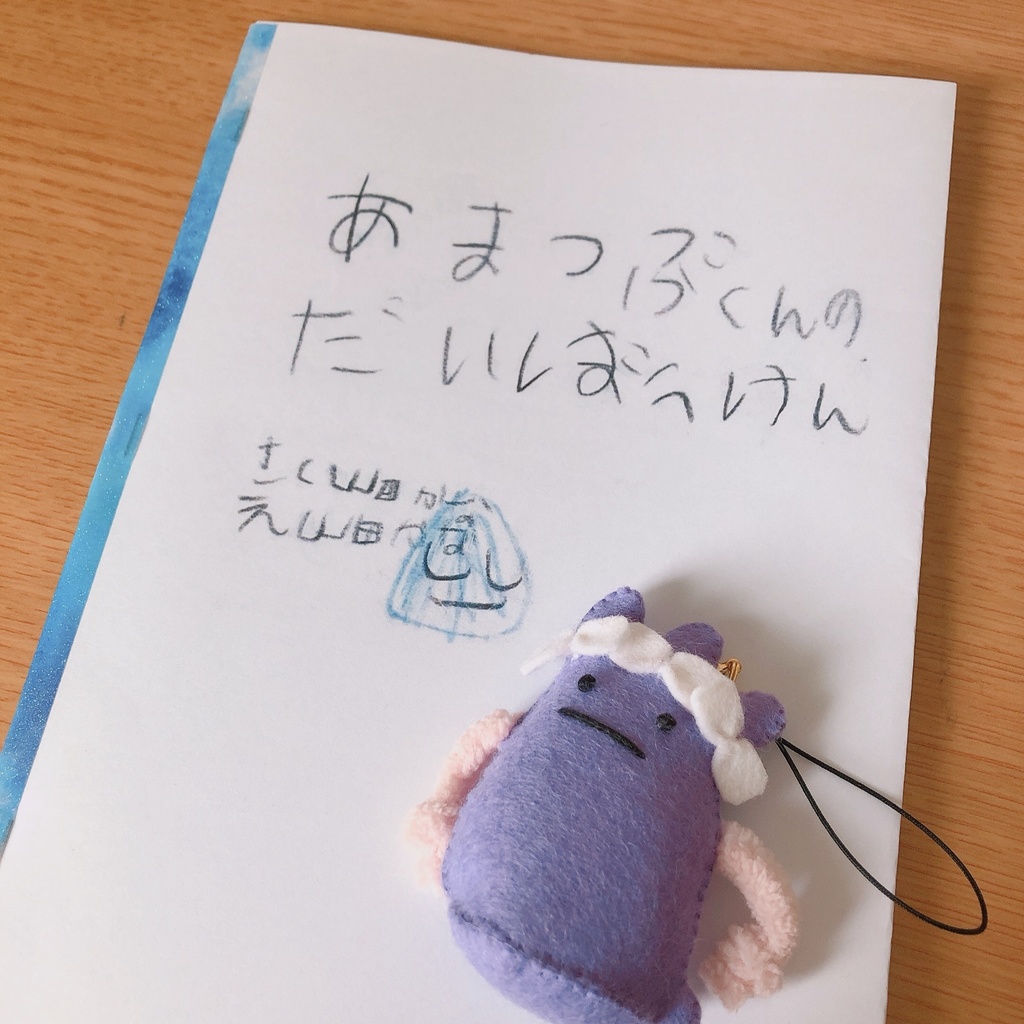 あまつぶくんの
だいぼうけん
さく山田か
え山田か